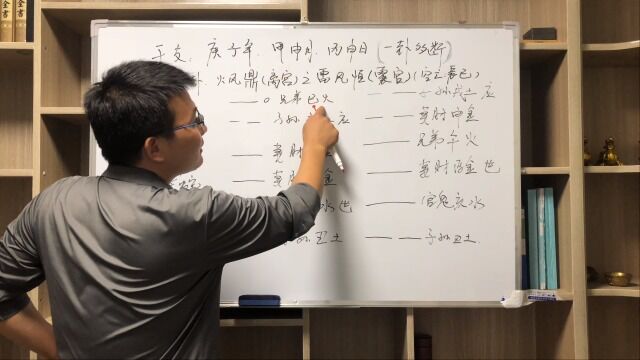 干支、庚子年、甲申月、丙申日(一卦多断)
卦 火风鼎(离宫)之雷风恒(震宫)(空亡:辰巳)
—— o 兄弟巳火 子孙戌土 应
— — 子孙 应 — — 妻财申金
—— 妻财 —— 兄弟午火
—— 妻财 金 —— 妻财酉金 世
水 世 —— 官鬼亥水
子孙丑土 — — 子孙丑土
全书